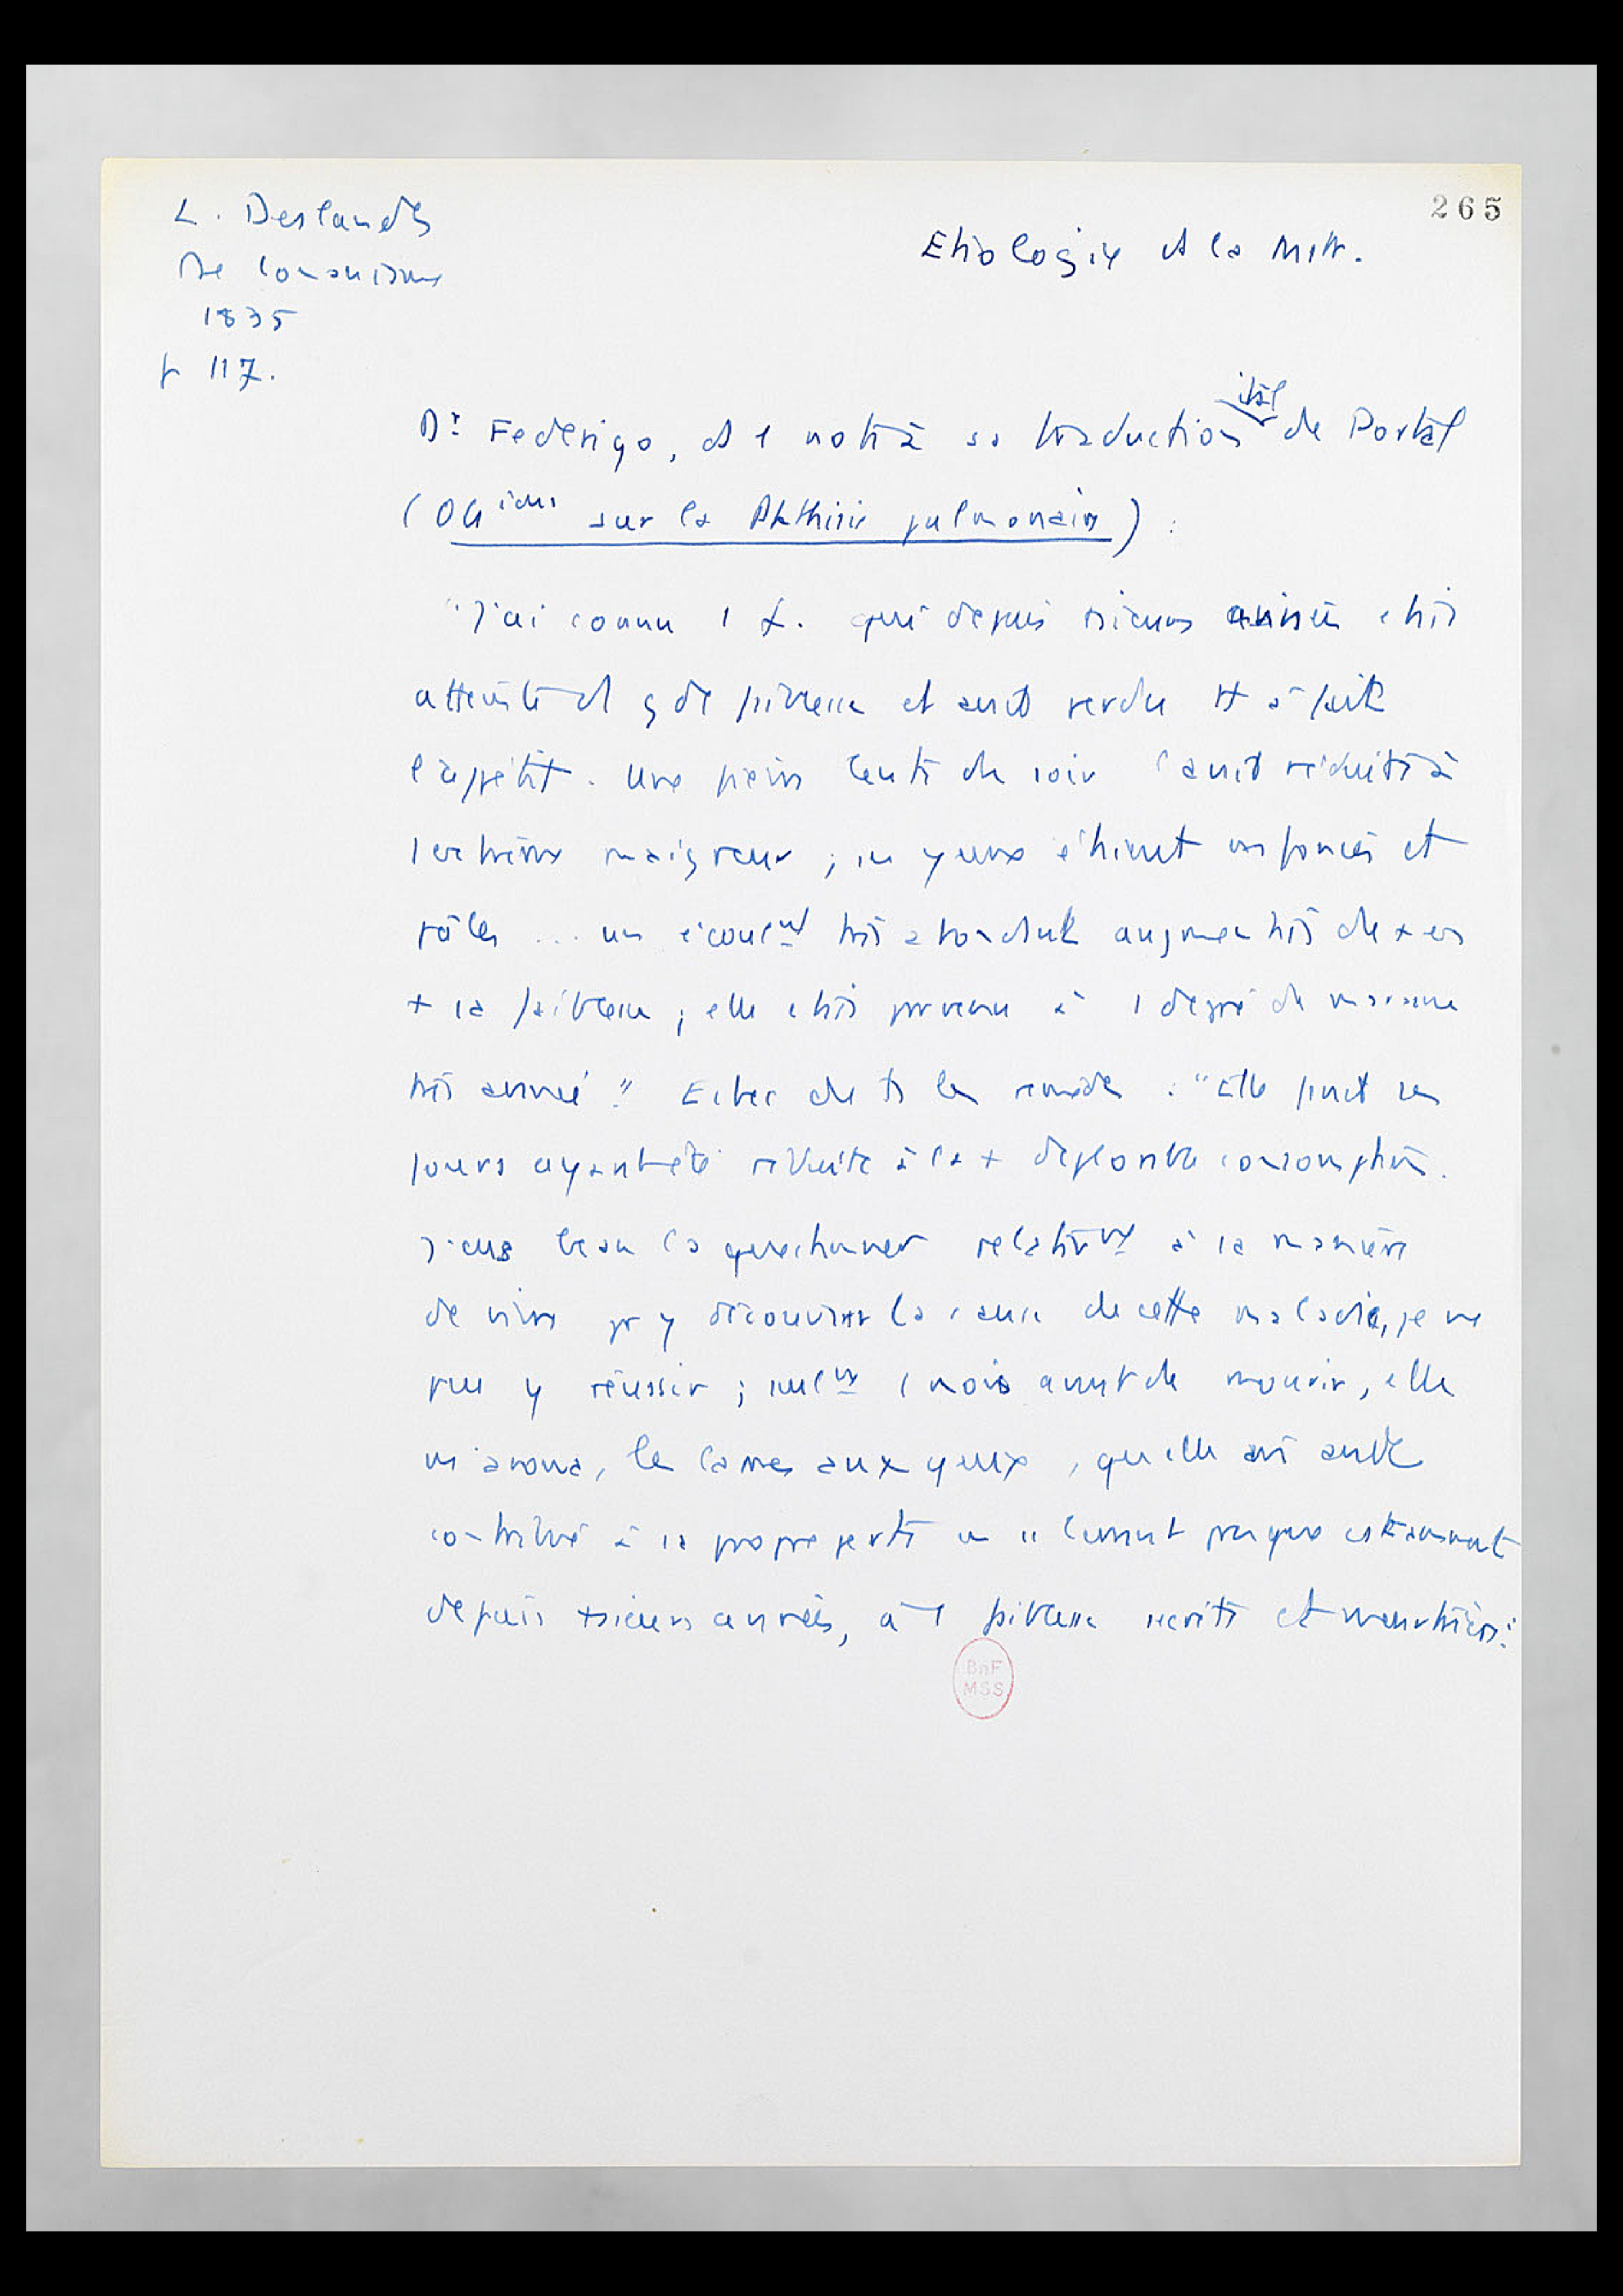 L. Deslandes
De l'onanisme
1835
p 117.
265
Etiologie de la Mstr.
Dr Federigo, ds 1 note à sa traduction ital de Portal
(Obtions sur la Phthisie pulmonaire) :
"J'ai connu 1 f. qui depuis +sieurs années était
atteinte d' gde faiblesse et avait perdu tt à fait
l'appétit. Une fièvre lente du soir l'avait réduite à
1 extrême maigreur ; ses yeux étaient enfoncés et
pâles ... un écoulmt très abondant augmentait de + en
+ sa faiblesse ; elle était parvenue à 1 degré de marasme
très avancé". Echec de ts les remèdes : "Elle finit ses
jours ayant été réduite à la + déplorable consomption.
J'eus beau la questionner relativmt à sa manière
de vivre pr y découvrir la cause de cette maladie, je ne
pus y réussir ; seulmt 1 mois avant de mourir, elle
m'avoua, les larmes aux yeux, qu'elle avait
contribué à sa propre perte en se livrant presque constamment
depuis +sieurs années, à 1 faiblesse secrète et meurtrière."
BnF
MSS